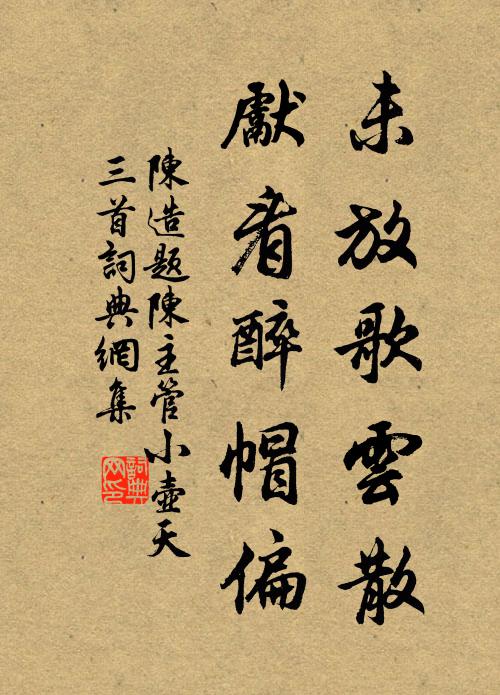 未放歌雲散
獻看醉帽偏
陳造題陳主管小壺天
三首詞典網集
詞典網印